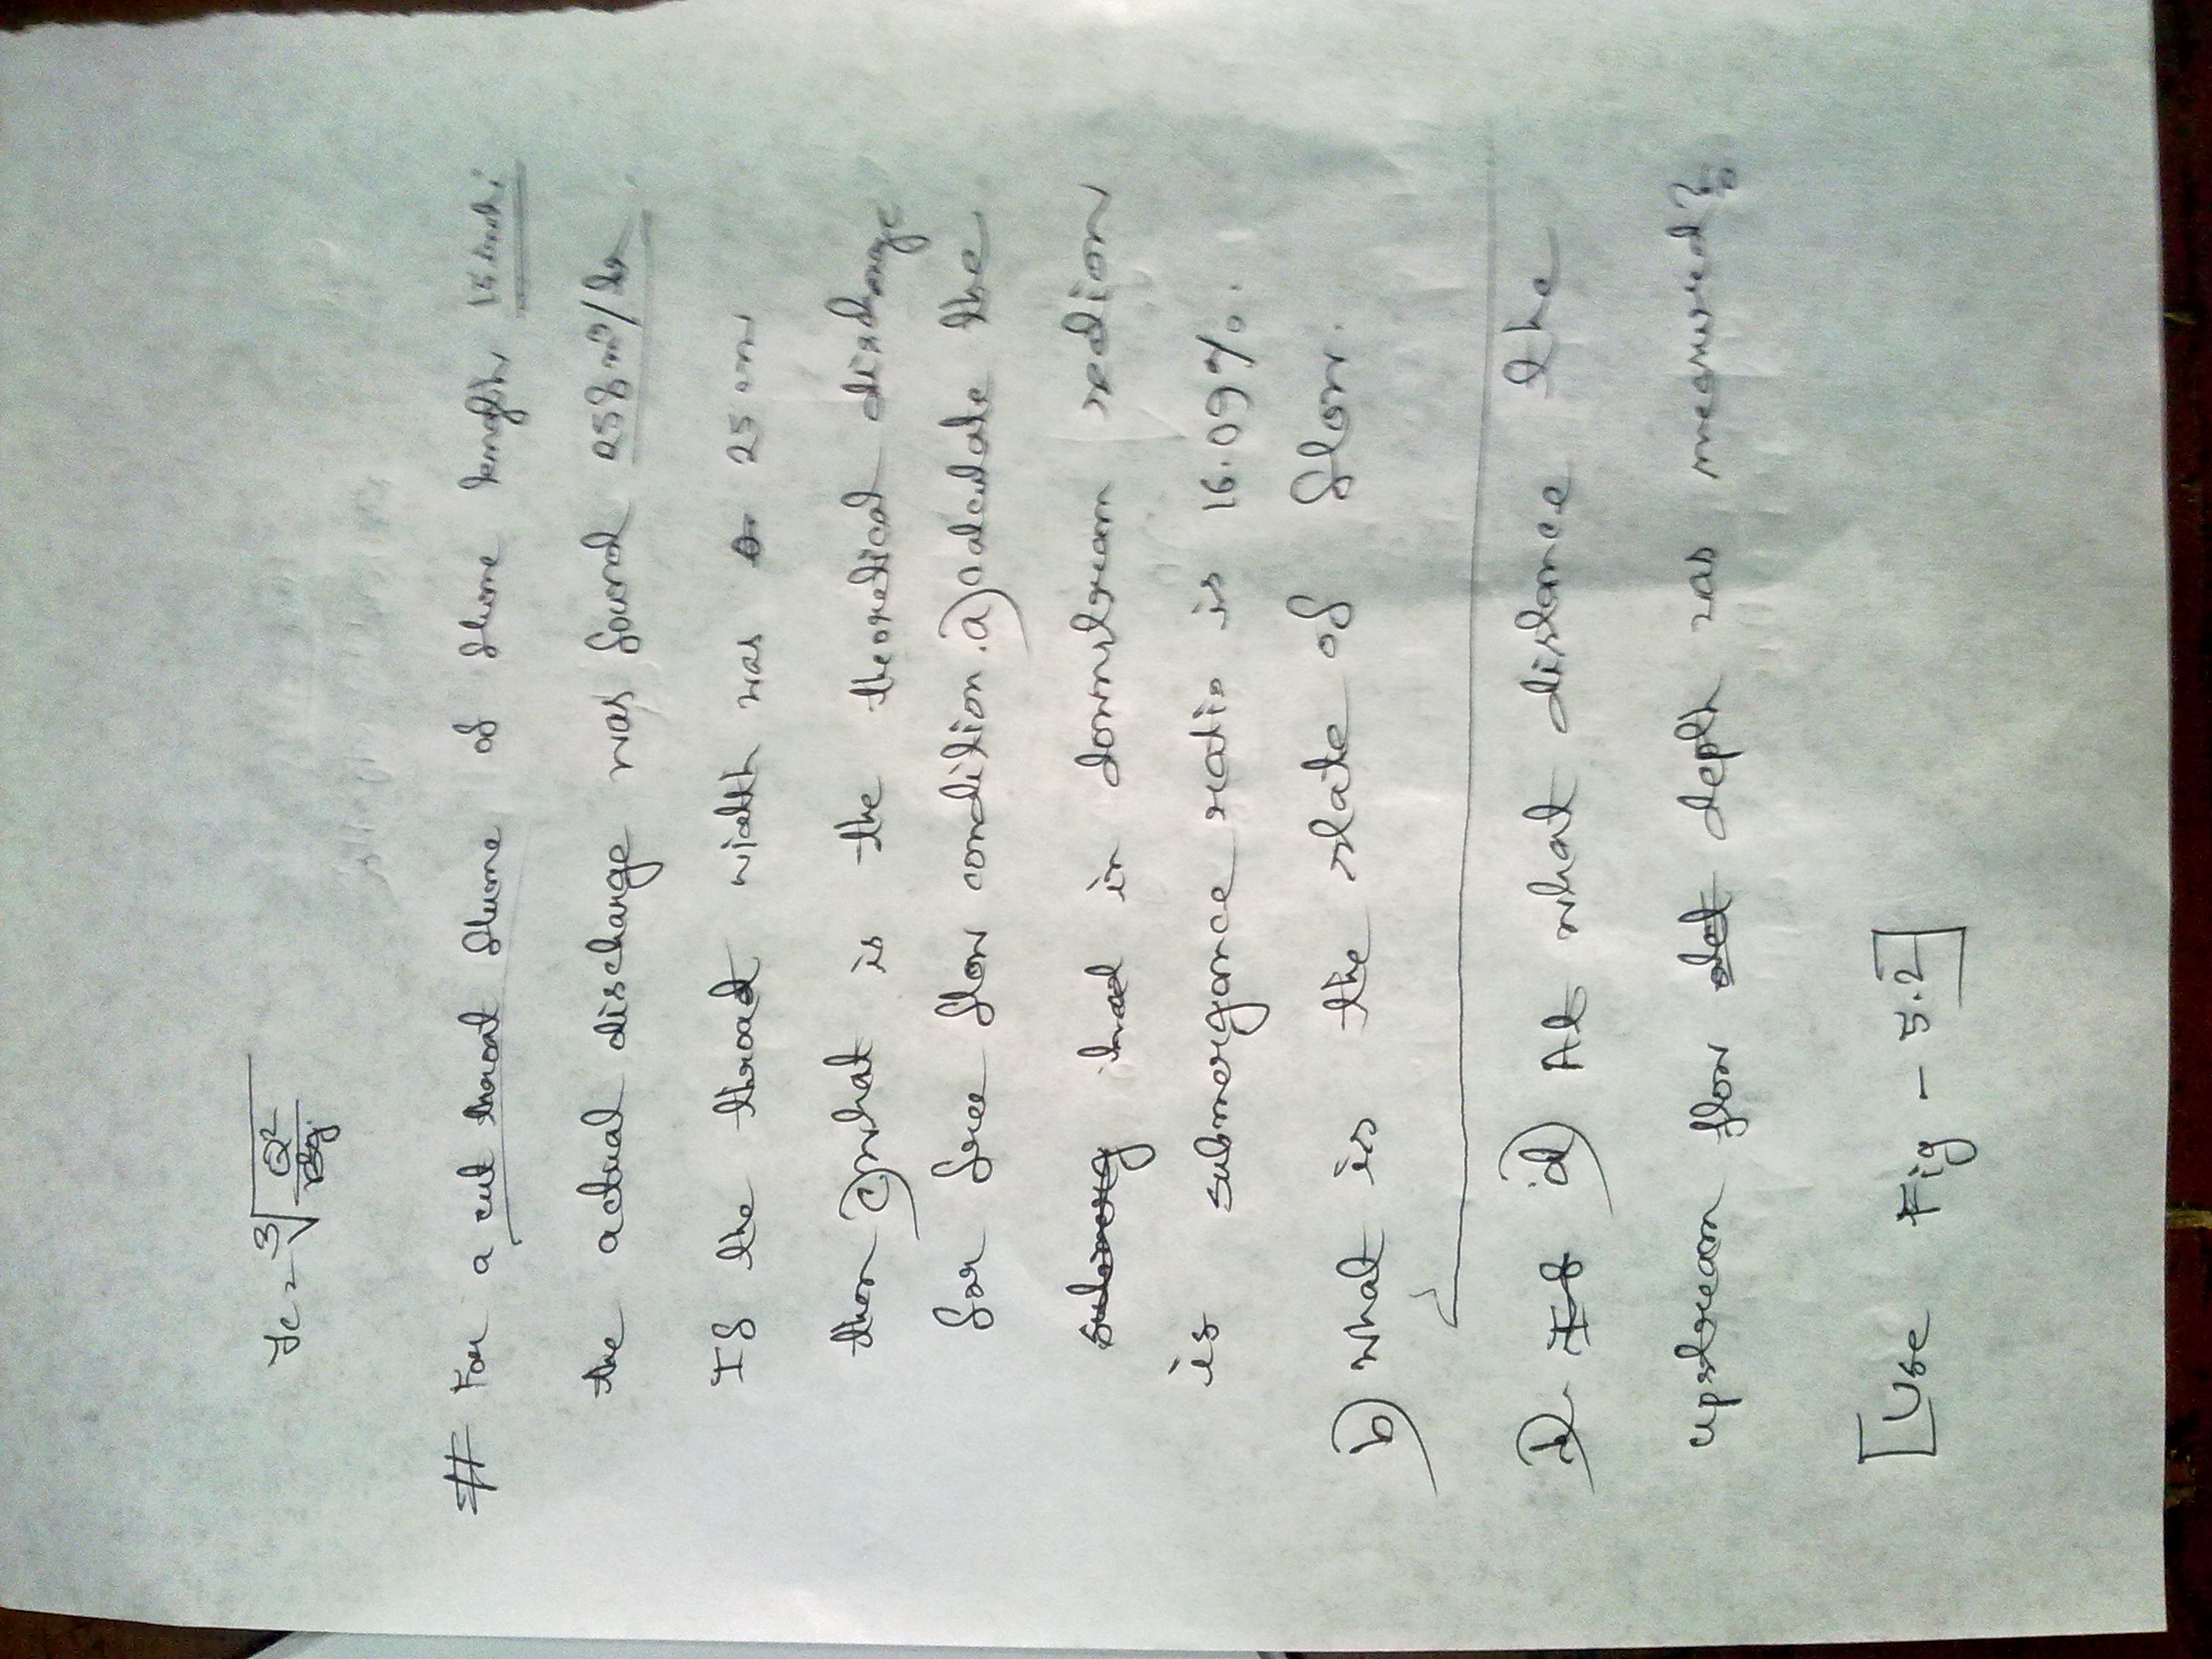 yc = ³√(Q²/b²g)
# For a cut throat flume of flume length 15 inch;
the actual discharge was found 258 m³/hr.
If the throat width was 25 cm
then c) what is the theoretical discharge
for free flow condition. a) calculate the
head in downstream section
is submergance ratio is 16.09%.
b) what is the state of flow.
d) At what distance the
upstream flow depth was measured?
[Use Fig - 5.2]